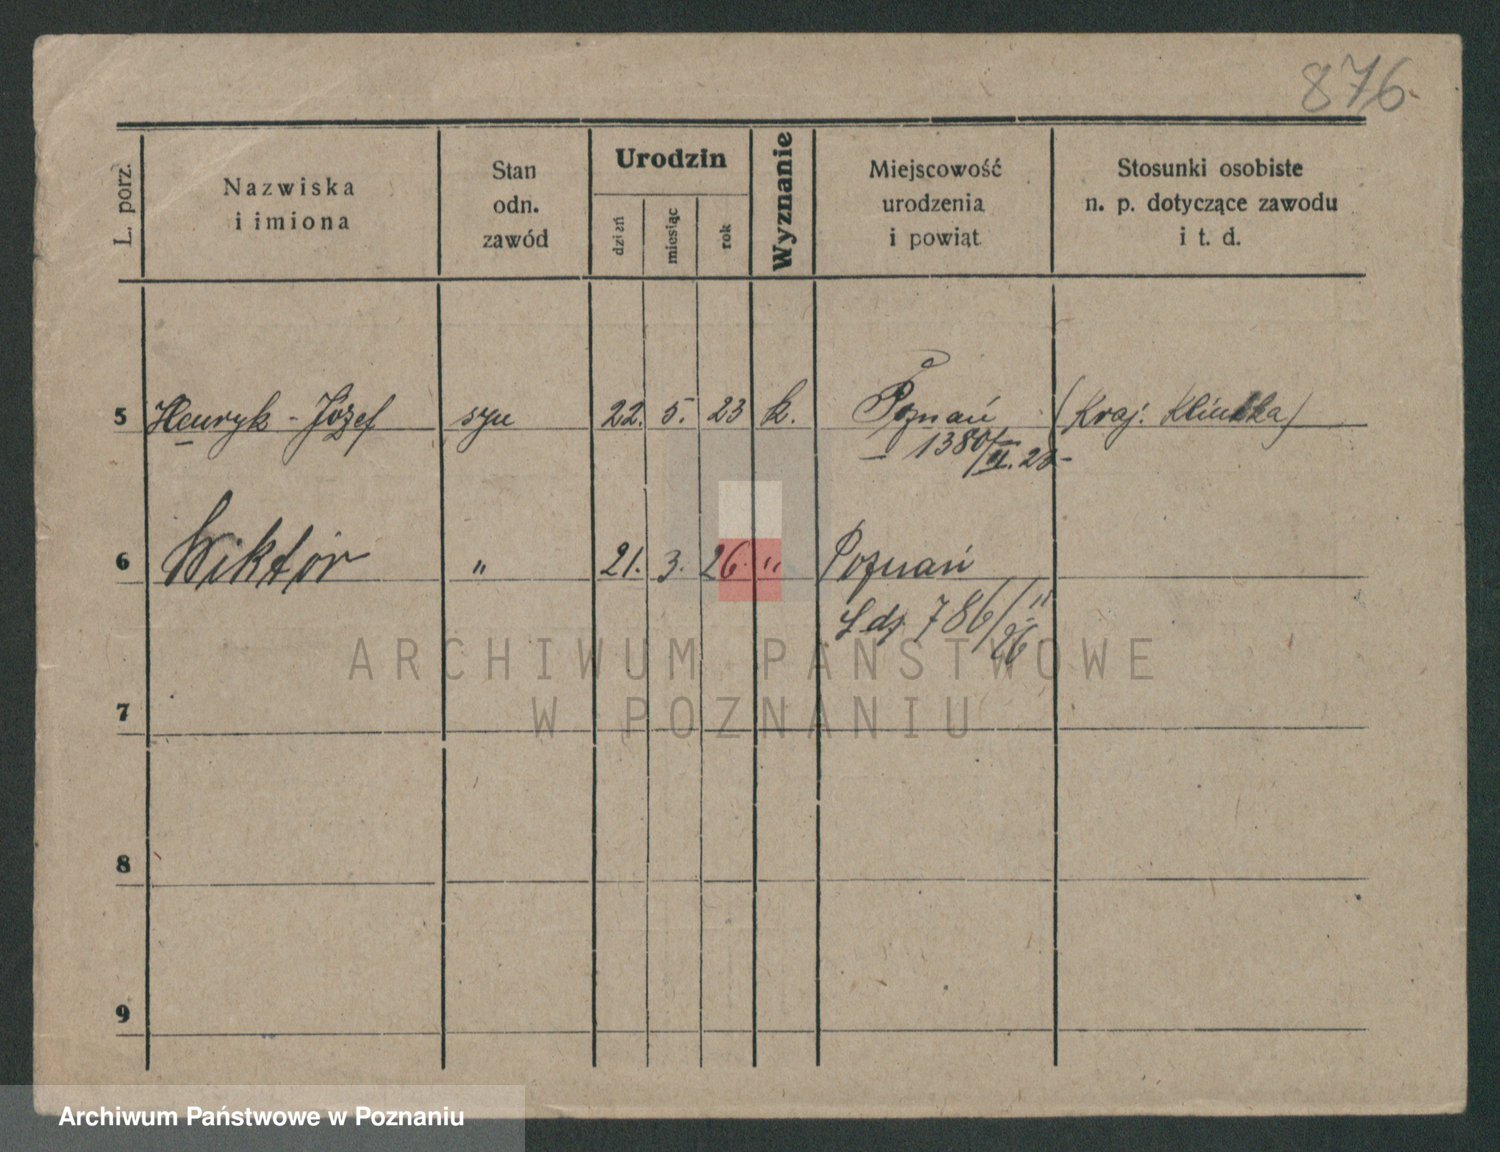 876.
L. porz.
Nazwiska
i imiona
Stan
odn.
zawód
Urodzin
dzień
miesiąc
rok
Wyznanie
Miejscowość
urodzenia
i powiąt
Stosunki osobiste
n. p. dotyczące zawodu
i t. d.
5 Henryk - Józef syn 22. 5. 23 k. Poznań (Kraj.
1380/II.
6 Wiktor " 21. 3. 26. " Poznań
Ldz 786/II
26
ARCHIWUM PAŃSTWOWE
W POZNANIU
7
8
9
Archiwum Państwowe w Poznaniu